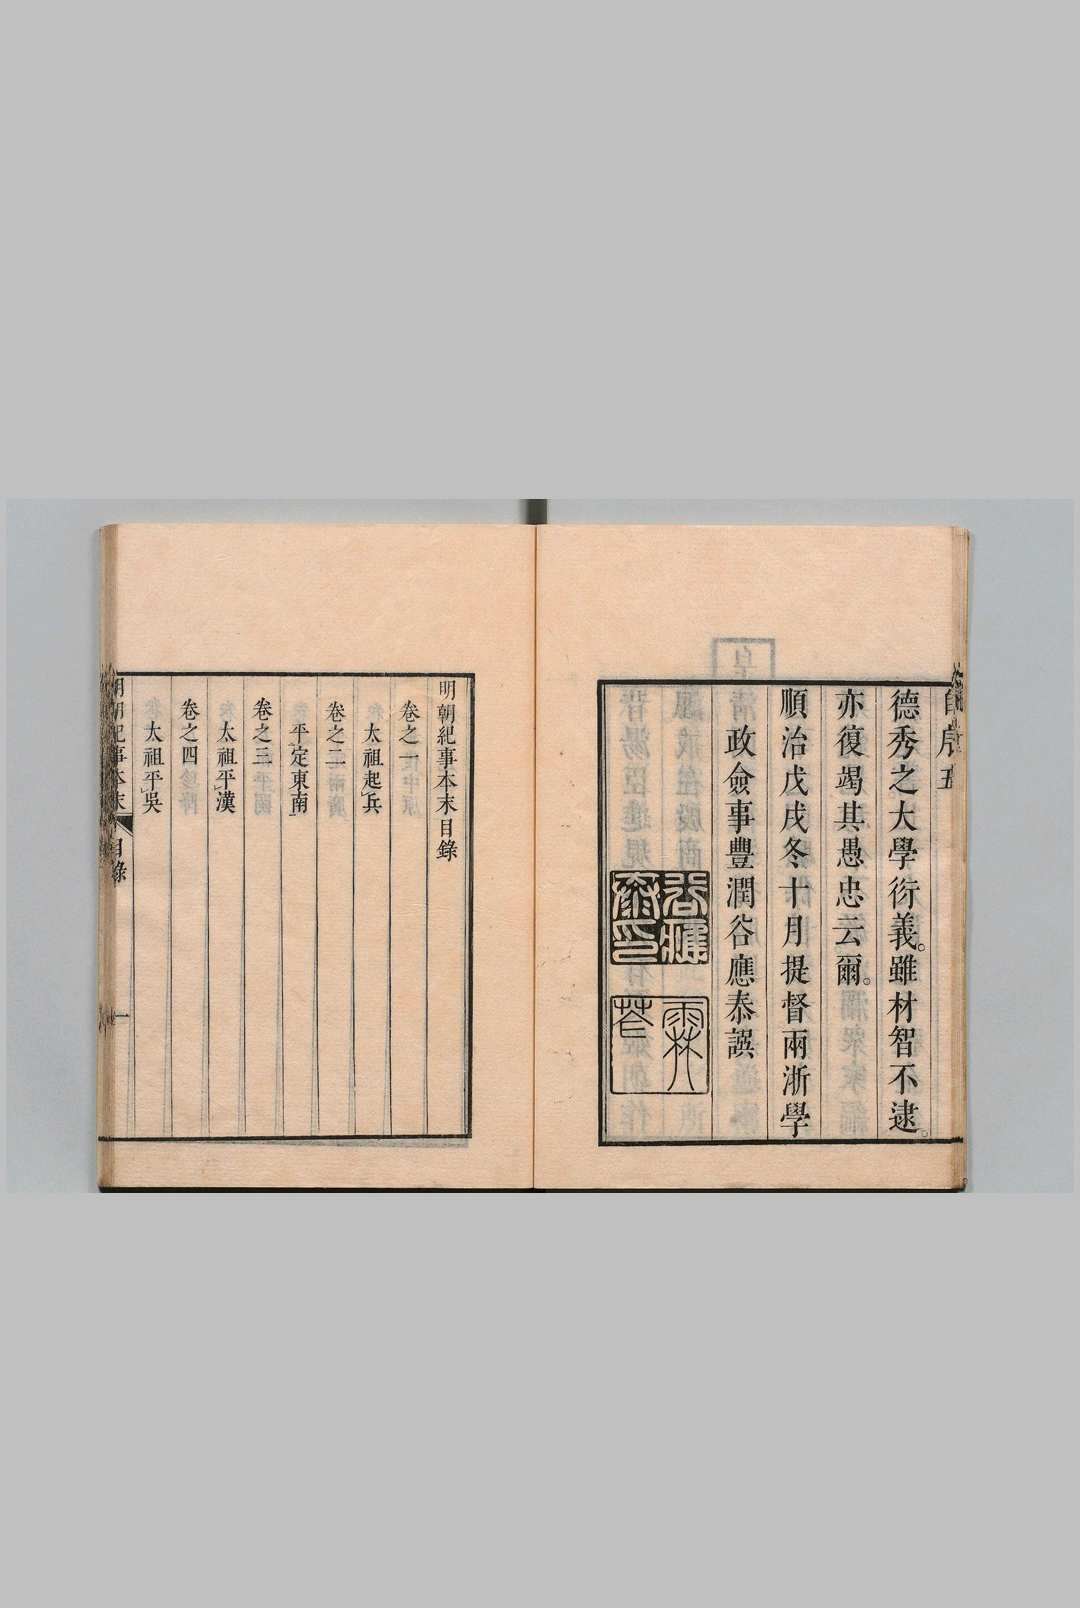 自序 五
德秀之大學衍義。雖材智不逮。
亦復竭其愚忠云爾。
順治戊戌冬十月提督兩浙學
政僉事豐潤谷應泰譔
谷應泰印
霖蒼
明朝紀事本末目錄
卷之一
太祖起兵
卷之二
平定東南
卷之三
太祖平漢
卷之四
太祖平吳
明朝紀事本末 目錄 一